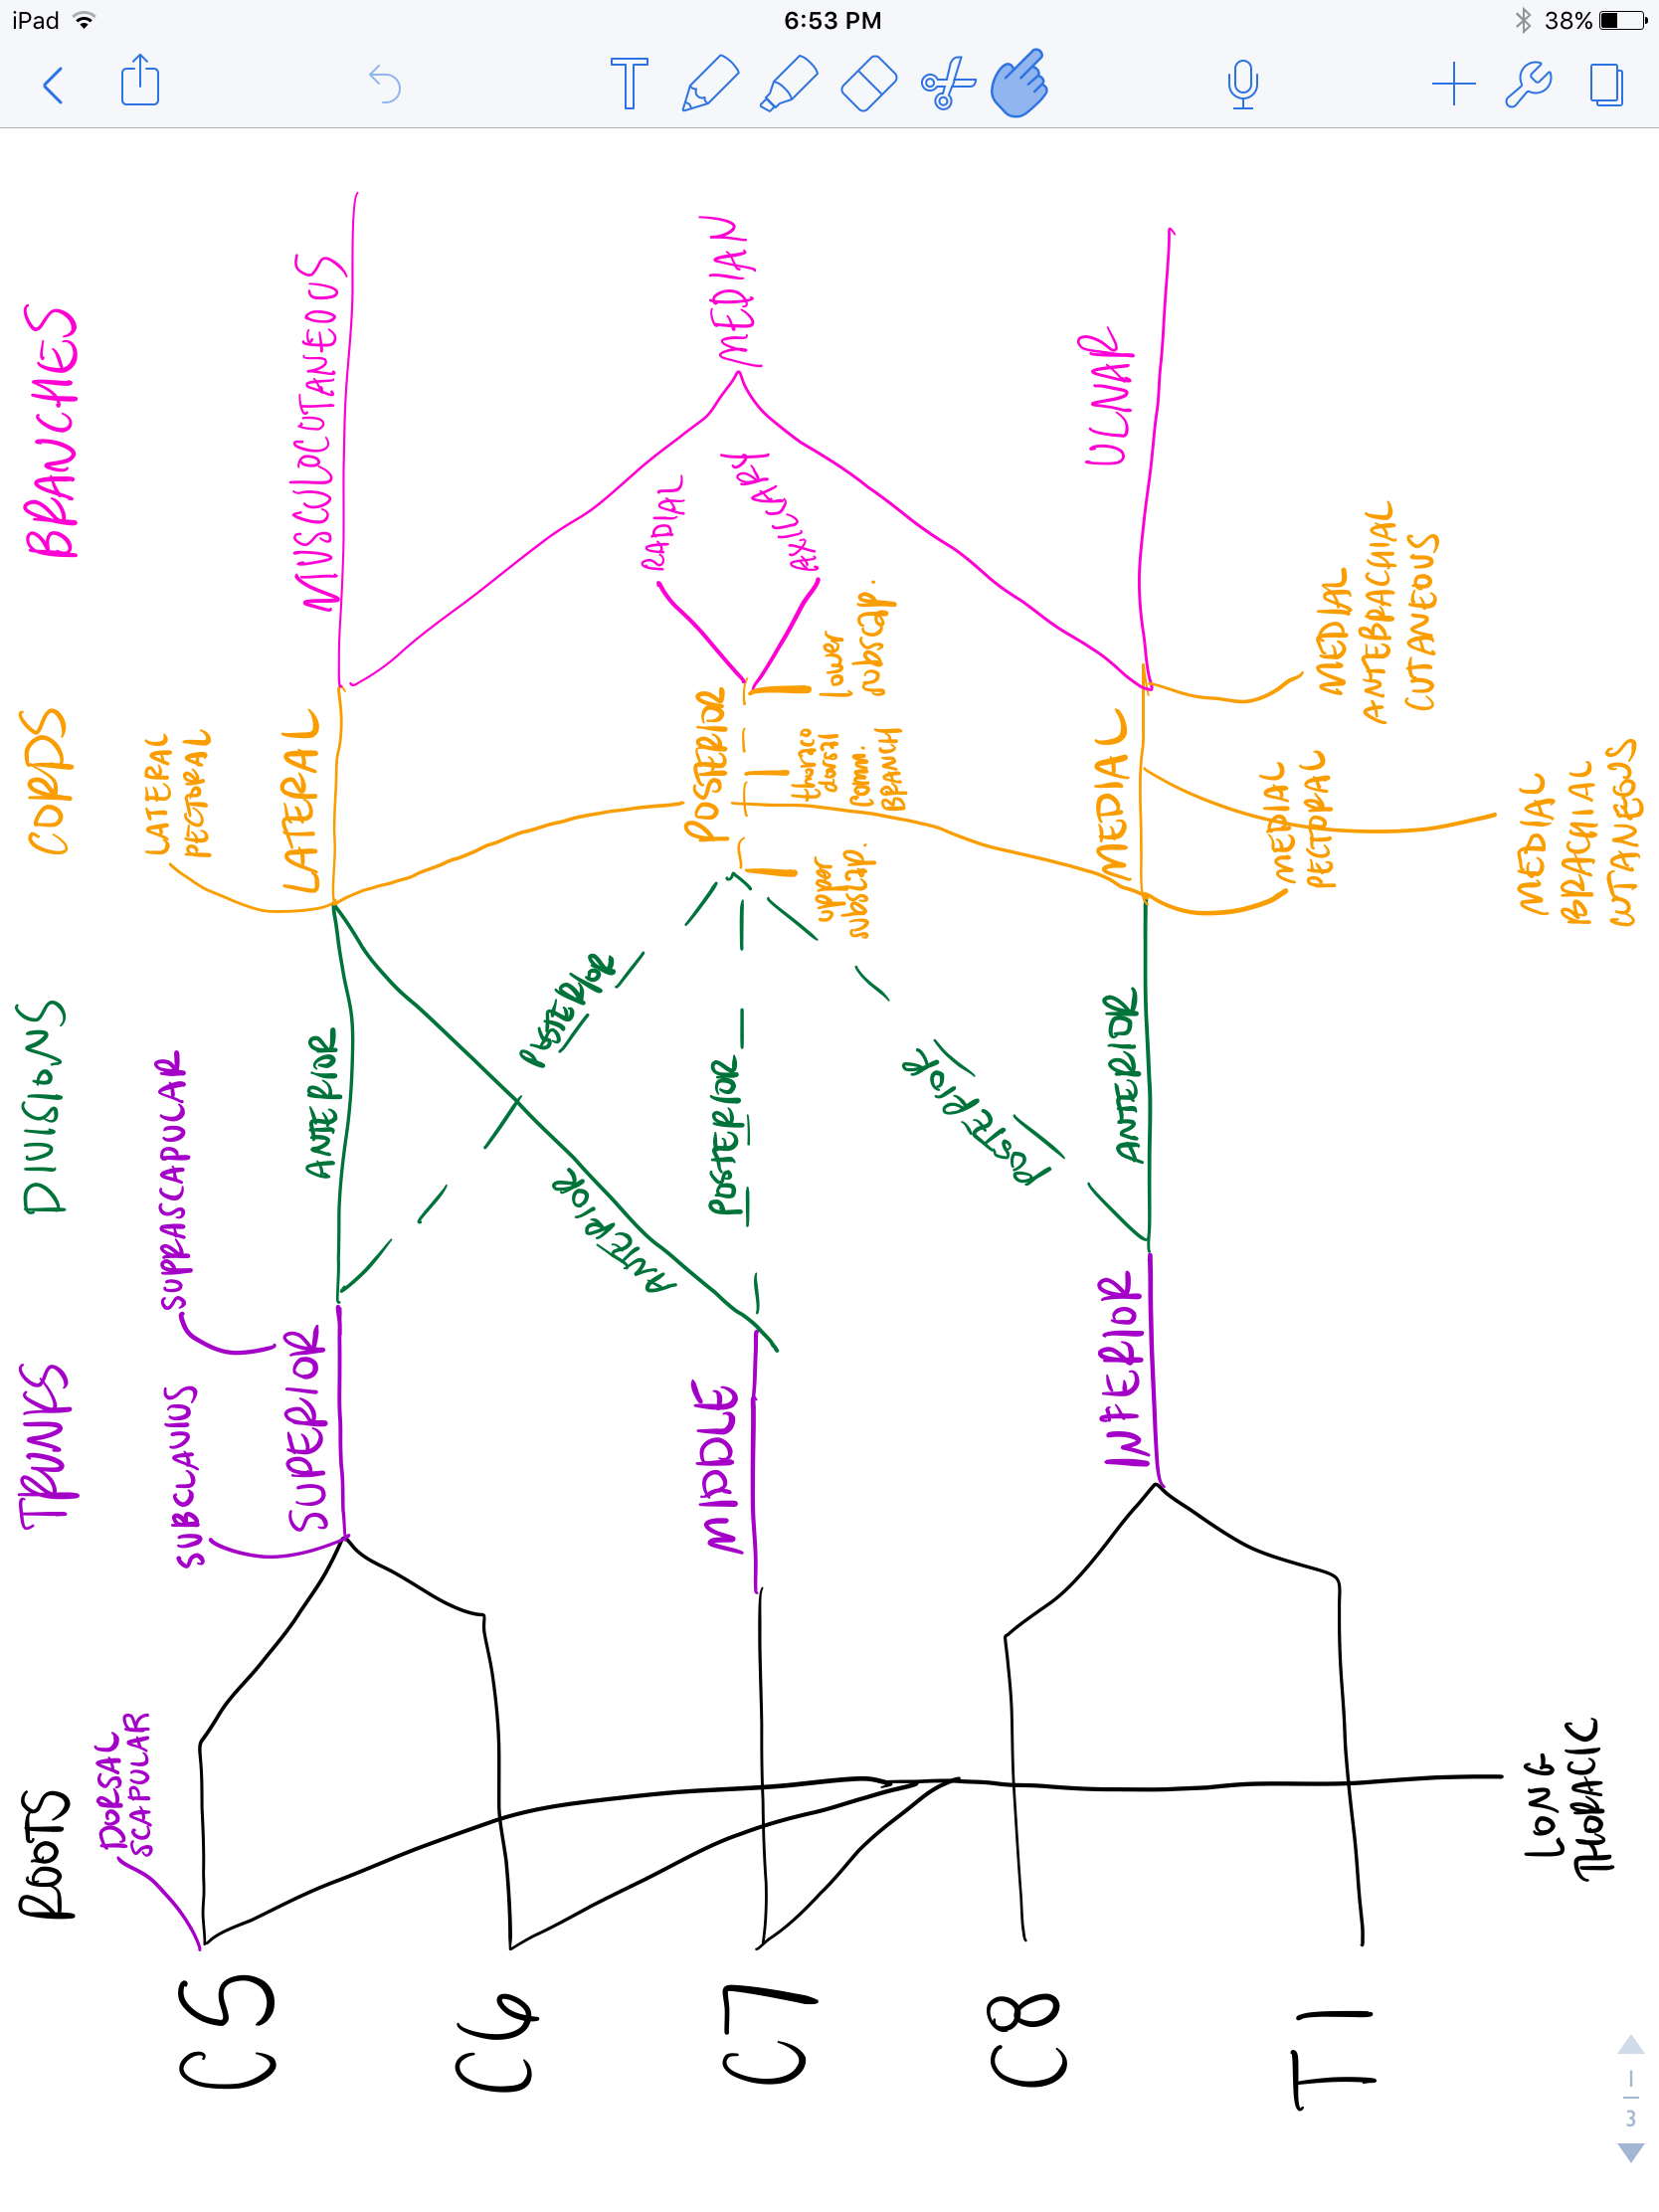 iPad
6:53 PM
38%
T
BRANCHES
MUSCULOCUTANEOUS
MEDIAN
RADIAL
AXILLARY
ULNAR
CORDS
LATERAL
PECTORAL
LATERAL
POSTERIOR
lower
subscap.
thoraco
dorsal
comm.
BRANCH
upper
subscap.
MEDIAL
MEDIAL
ANTEBRACHIAL
CUTANEOUS
MEDIAL
PECTORAL
MEDIAL
BRACHIAL
CUTANEOUS
DIVISIONS
ANTERIOR
POSTERIOR
ANTERIOR
POSTERIOR
POSTERIOR
ANTERIOR
TRUNKS
SUPRASCAPULAR
SUBCLAVIUS
SUPERIOR
MIDDLE
INFERIOR
ROOTS
DORSAL
SCAPULAR
LONG
THORACIC
C5
C6
C7
C8
T1
1
3